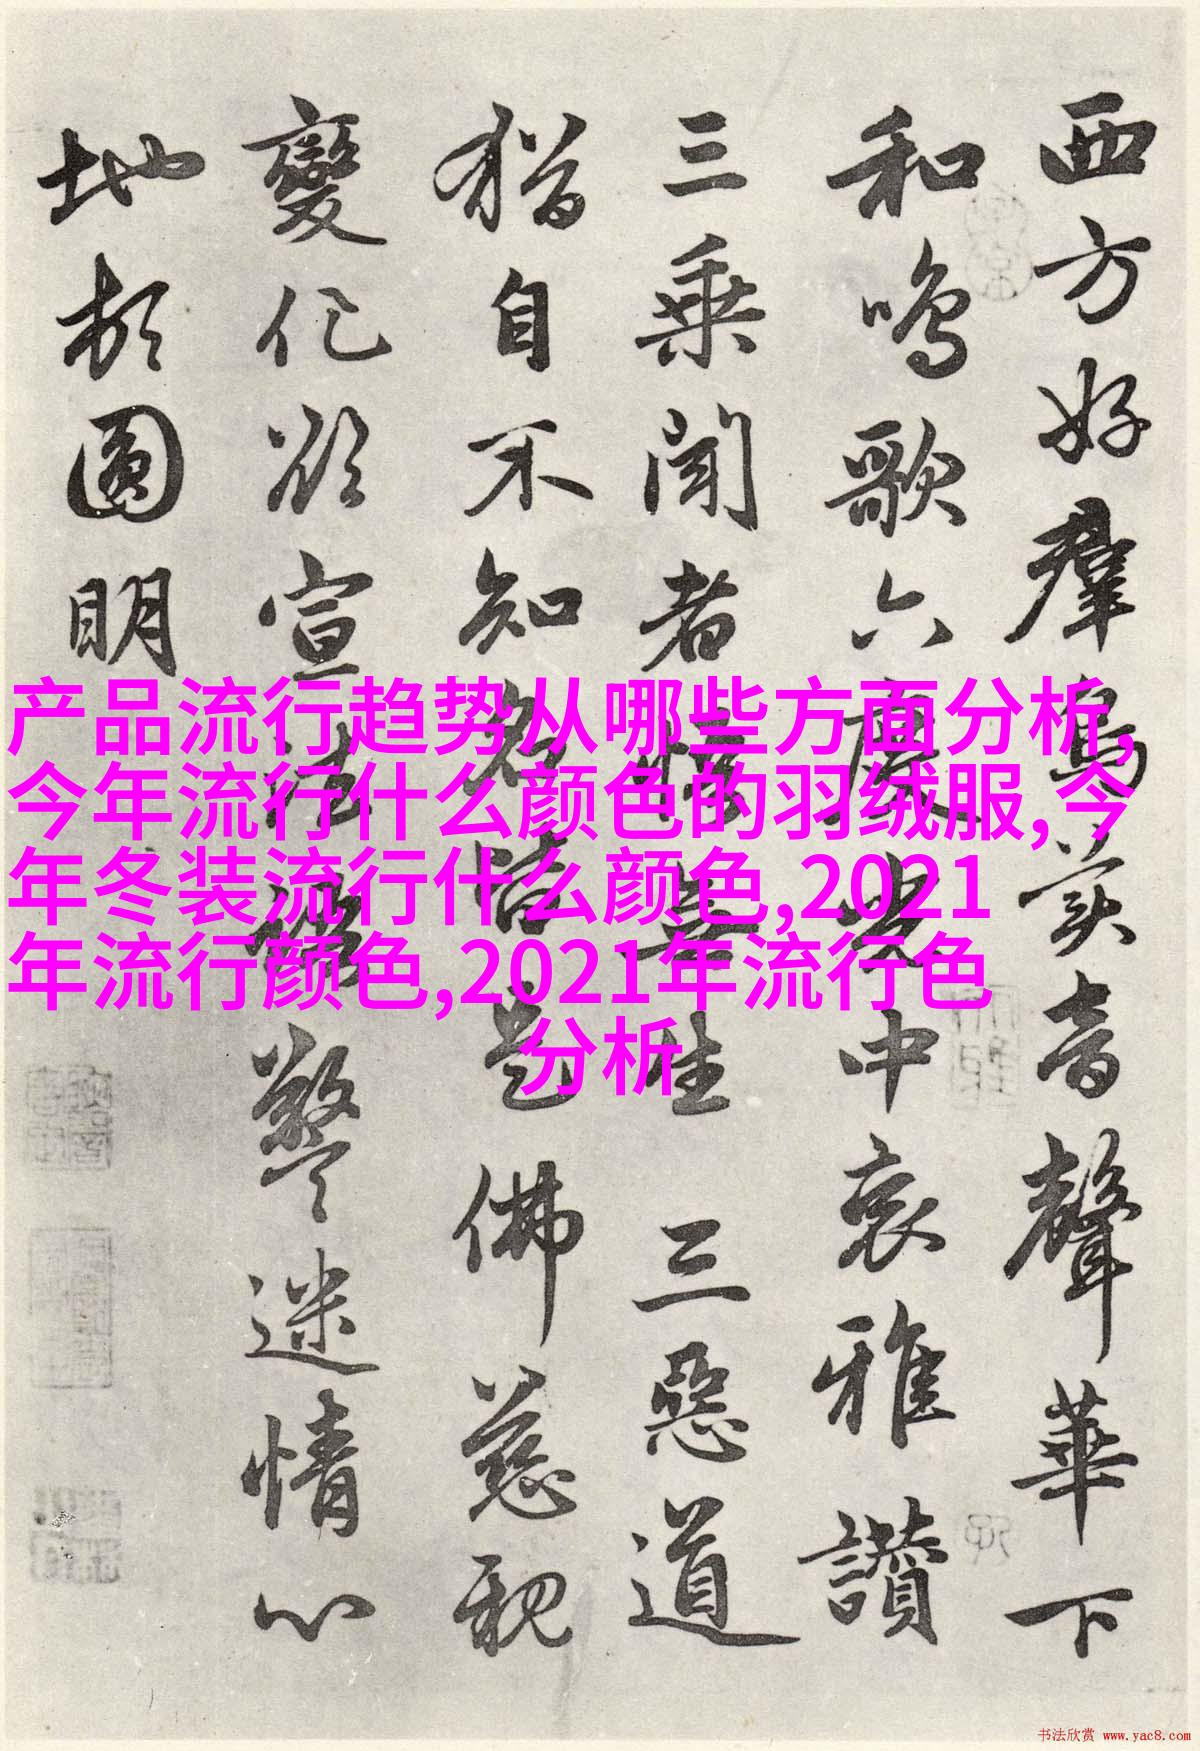 产品流行趋势从哪些方面分析,
今年流行什么颜色的羽绒服,今
年冬装流行什么颜色,2021
年流行颜色,2021年流行色
分析
西方好羣鳥音聲華下
和鳴歌六中哀雅讚
三乘聞者生三惡道
猶自不知名皆是佛慈親
變化欲宣法警迷情心
地頓圓明
书法欣赏 www.yac8.com